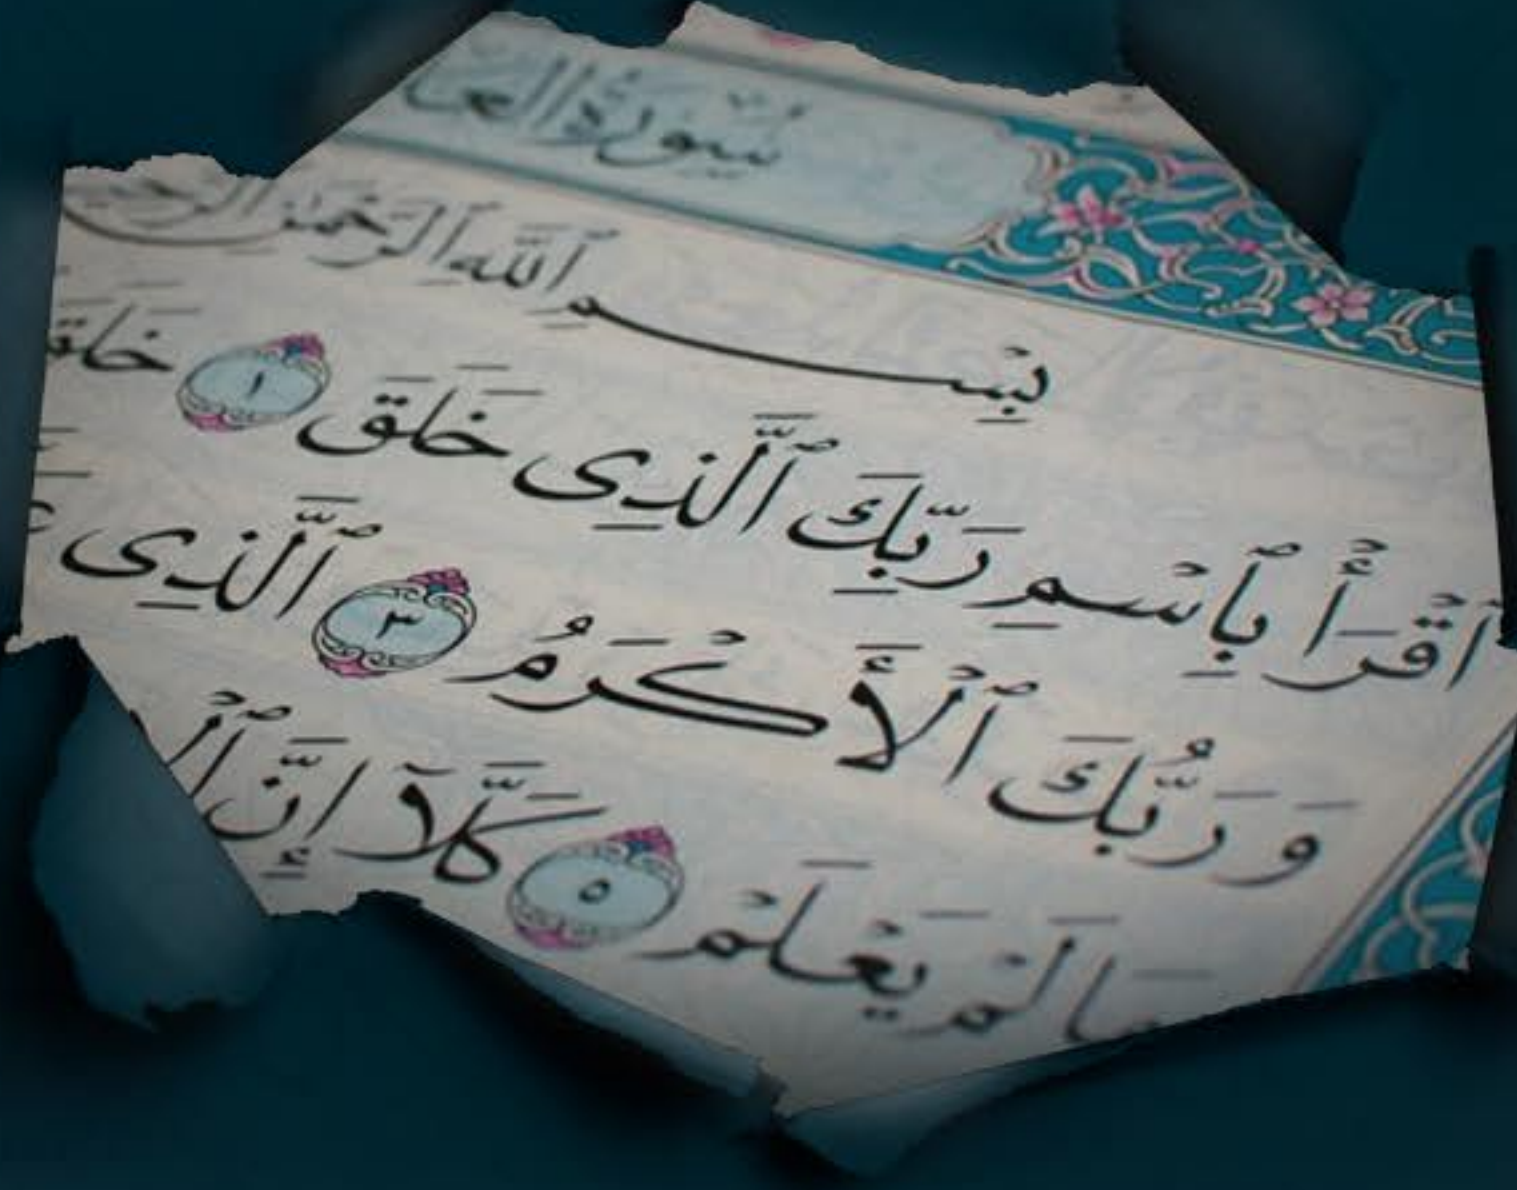 سُورَةُ
بِسْمِ ٱللَّهِ ٱلرَّحْمَٰنِ
ٱقْرَأْ بِٱسْمِ رَبِّكَ ٱلَّذِى خَلَقَ ١
وَرَبُّكَ ٱلْأَكْرَمُ ٣ ٱلَّذِى
لَمْ يَعْلَمْ ٥ كَلَّآ إِنَّ